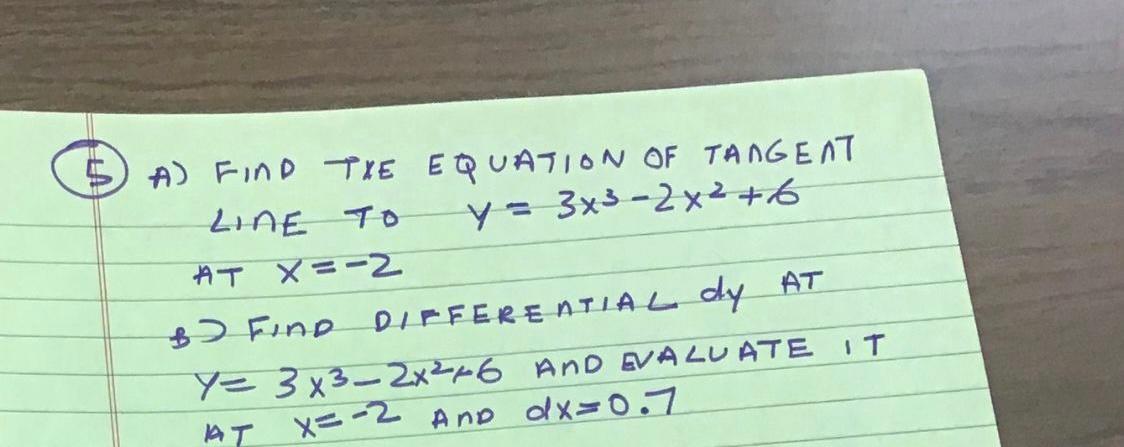 5 A) FIND THE EQUATION OF TANGENT
LINE TO y = 3x³-2x²+6
AT X=-2
B) FIND DIFFERENTIAL dy AT
Y= 3x³-2x²+6 AND EVALUATE IT
AT X=-2 AND dx=0.7